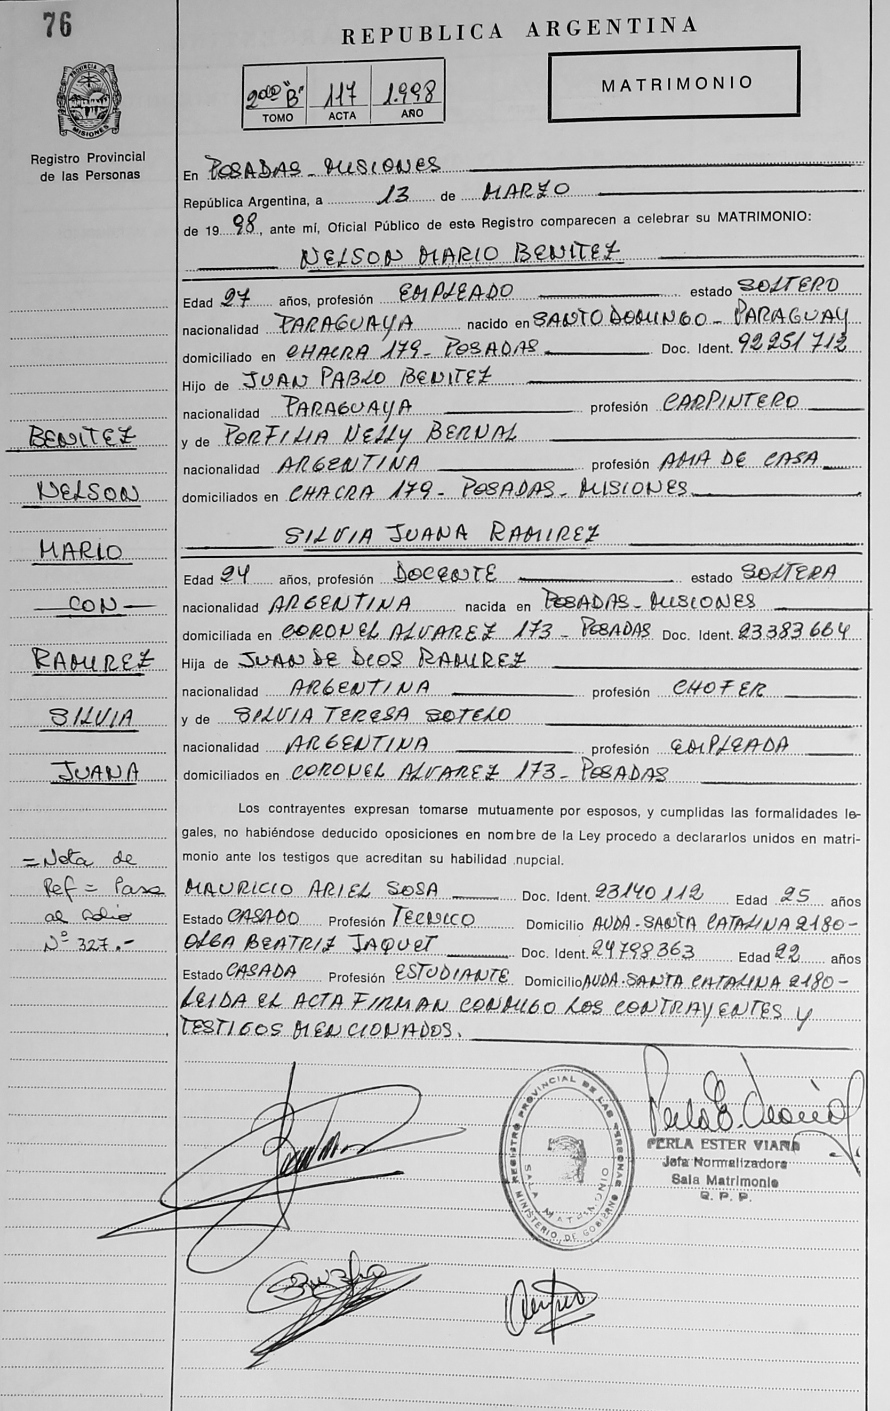 76
REPUBLICA ARGENTINA
2do "B" 117 1.998
TOMO ACTA AÑO
MATRIMONIO
PROVINCIA DE MISIONES
Registro Provincial
de las Personas
En POSADAS - MISIONES
República Argentina, a 13 de MARZO
de 19 98, ante mí, Oficial Público de este Registro comparecen a celebrar su MATRIMONIO:
NELSON MARIO BENITEZ
Edad 27 años, profesión EMPLEADO estado SOLTERO
nacionalidad PARAGUAYA nacido en SANTO DOMINGO - PARAGUAY
domiciliado en CHACRA 179 - POSADAS Doc. Ident. 92251712
Hijo de JUAN PABLO BENITEZ
nacionalidad PARAGUAYA profesión CARPINTERO
y de PORFILIA NELLY BERNAL
nacionalidad ARGENTINA profesión AMA DE CASA
domiciliados en CHACRA 179 - POSADAS - MISIONES
SILVIA JUANA RAMIREZ
Edad 24 años, profesión DOCENTE estado SOLTERA
nacionalidad ARGENTINA nacida en POSADAS - MISIONES
domiciliada en CORONEL ALVAREZ 173 - POSADAS Doc. Ident. 23383664
Hija de JUAN DE DIOS RAMIREZ
nacionalidad ARGENTINA profesión CHOFER
y de SILVIA TERESA SOTELO
nacionalidad ARGENTINA profesión EMPLEADA
domiciliados en CORONEL ALVAREZ 173 - POSADAS
Los contrayentes expresan tomarse mutuamente por esposos, y cumplidas las formalidades le-
gales, no habiéndose deducido oposiciones en nombre de la Ley procedo a declararlos unidos en matri-
monio ante los testigos que acreditan su habilidad nupcial.
MAURICIO ARIEL SOSA Doc. Ident. 23140112 Edad 25 años
Estado CASADO Profesión TECNICO Domicilio AVDA. SANTA CATALINA 2180-
OLGA BEATRIZ JAQUET Doc. Ident. 24798363 Edad 22 años
Estado CASADA Profesión ESTUDIANTE Domicilio AVDA. SANTA CATALINA 2180-
LEIDA EL ACTA FIRMAN CONMIGO LOS CONTRAYENTES Y
TESTIGOS MENCIONADOS.
BENITEZ
NELSON
MARIO
CON
RAMIREZ
SILVIA
JUANA
= Nota de
Ref = Pasa
al folio
Nº 327.-
REGISTRO PROVINCIAL DE LAS PERSONAS
SALA MATRIMONIO
MINISTERIO DE GOBIERNO
PERLA ESTER VIANA
Jefa Normalizadora
Sala Matrimonio
R. P. P.